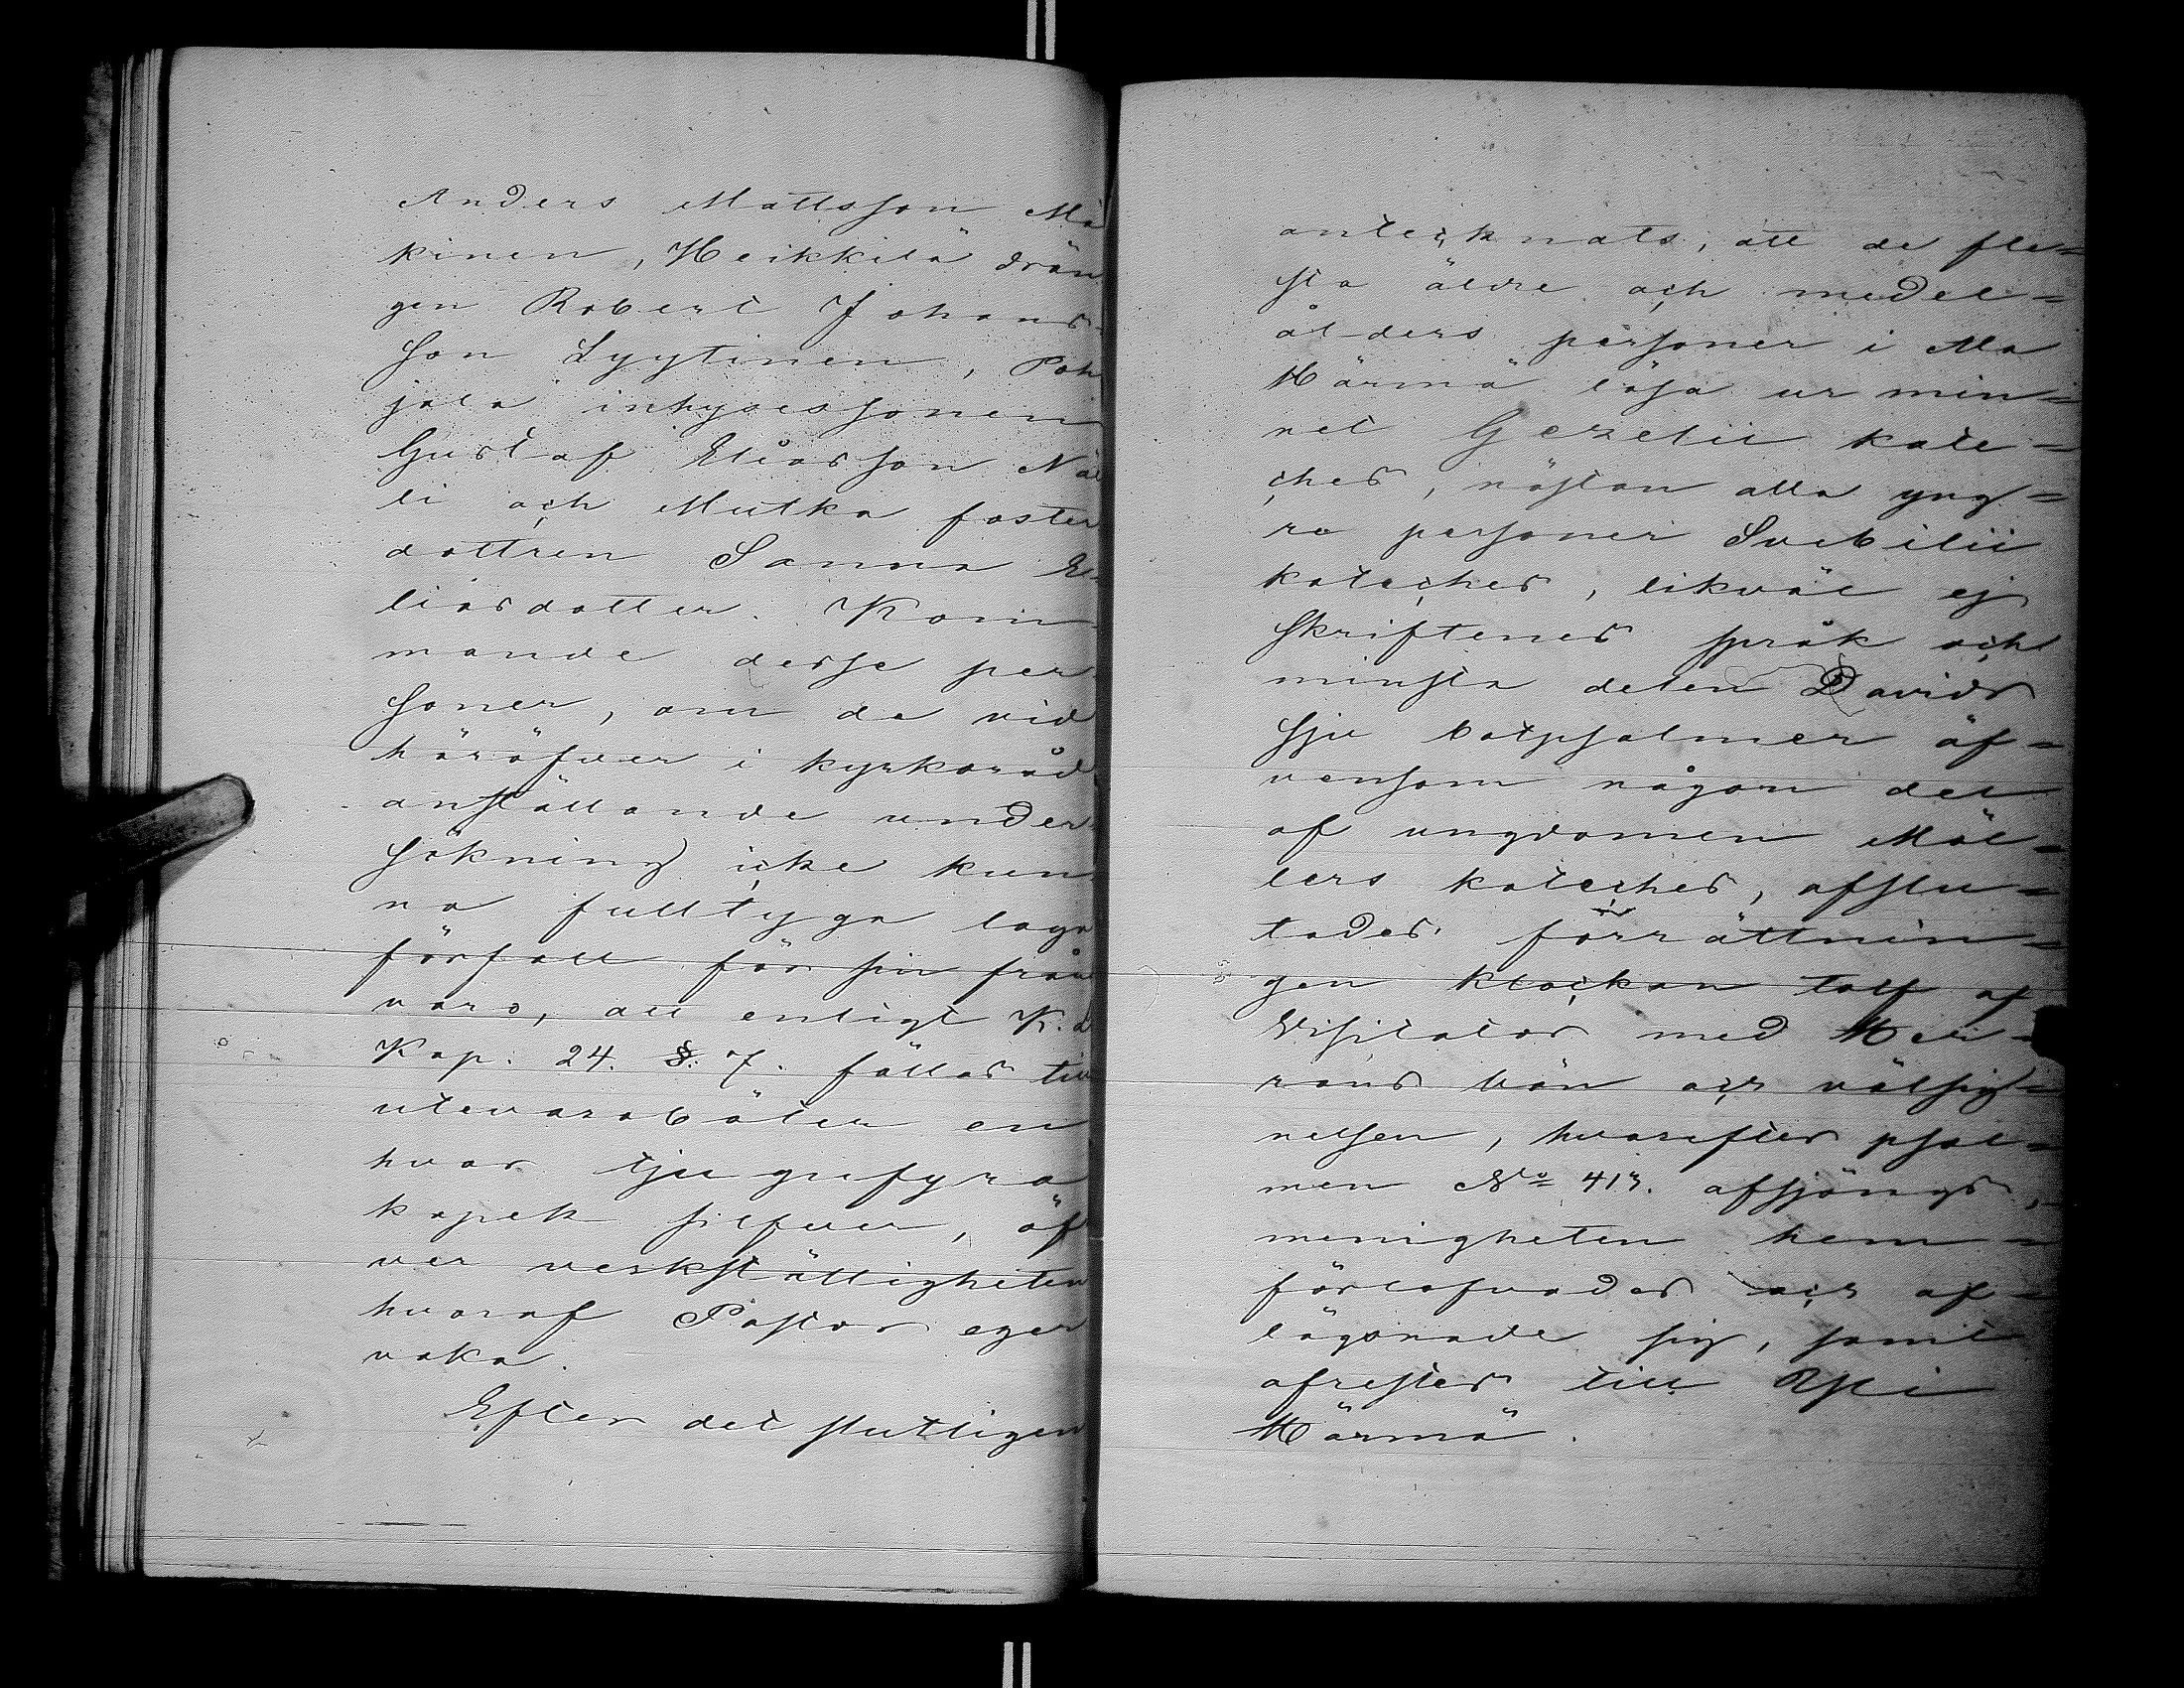 Anders Mattsson Mä
kinen, Heikkilä drän
gen Robert Johans-
son Lyytinen, Poh
jola inhysessonen
Gustaf Eliasson Näl
li och Mutka foster
dottren Sanna E-
liasdotter. Kom-
mande desse per
soner, om de vid
häröfver i kyrkoråd
anställande under
sökning icke kun
na fulltyga laga
förfall för sin från
varo, att enligt K. L.
Kap. 24. §. 7. fällas till
utevarobötew en
hvar tjugufyra
kopek silfver, öf
ver verkställigheten
hvaraf Pastor eger
vaka.
Efter det slutligen
antecknats, att de fle=
sta äldre och medel=
ålders personer i Ala
Härmä läsa ur min=
net Gezelii kate=
ches, nästan alla yng=
re personer Svebilii
kateches, likväl ej
skriftenes språk och
minsta delen Davids
sju botpsalmer äf=
vensom någon del
af ungdomen Möl=
lers kateches, afslu=
tades förrättnin=
gen klockan tolf af
Visitator med Her=
rans bön och välsig=
nelsen, hvarefter psal=
men No 413. afsjöngs,
menigheten hem=
förlofvades och af=
lägsnade sig, samt
afrestes till Ylli
Härmä.